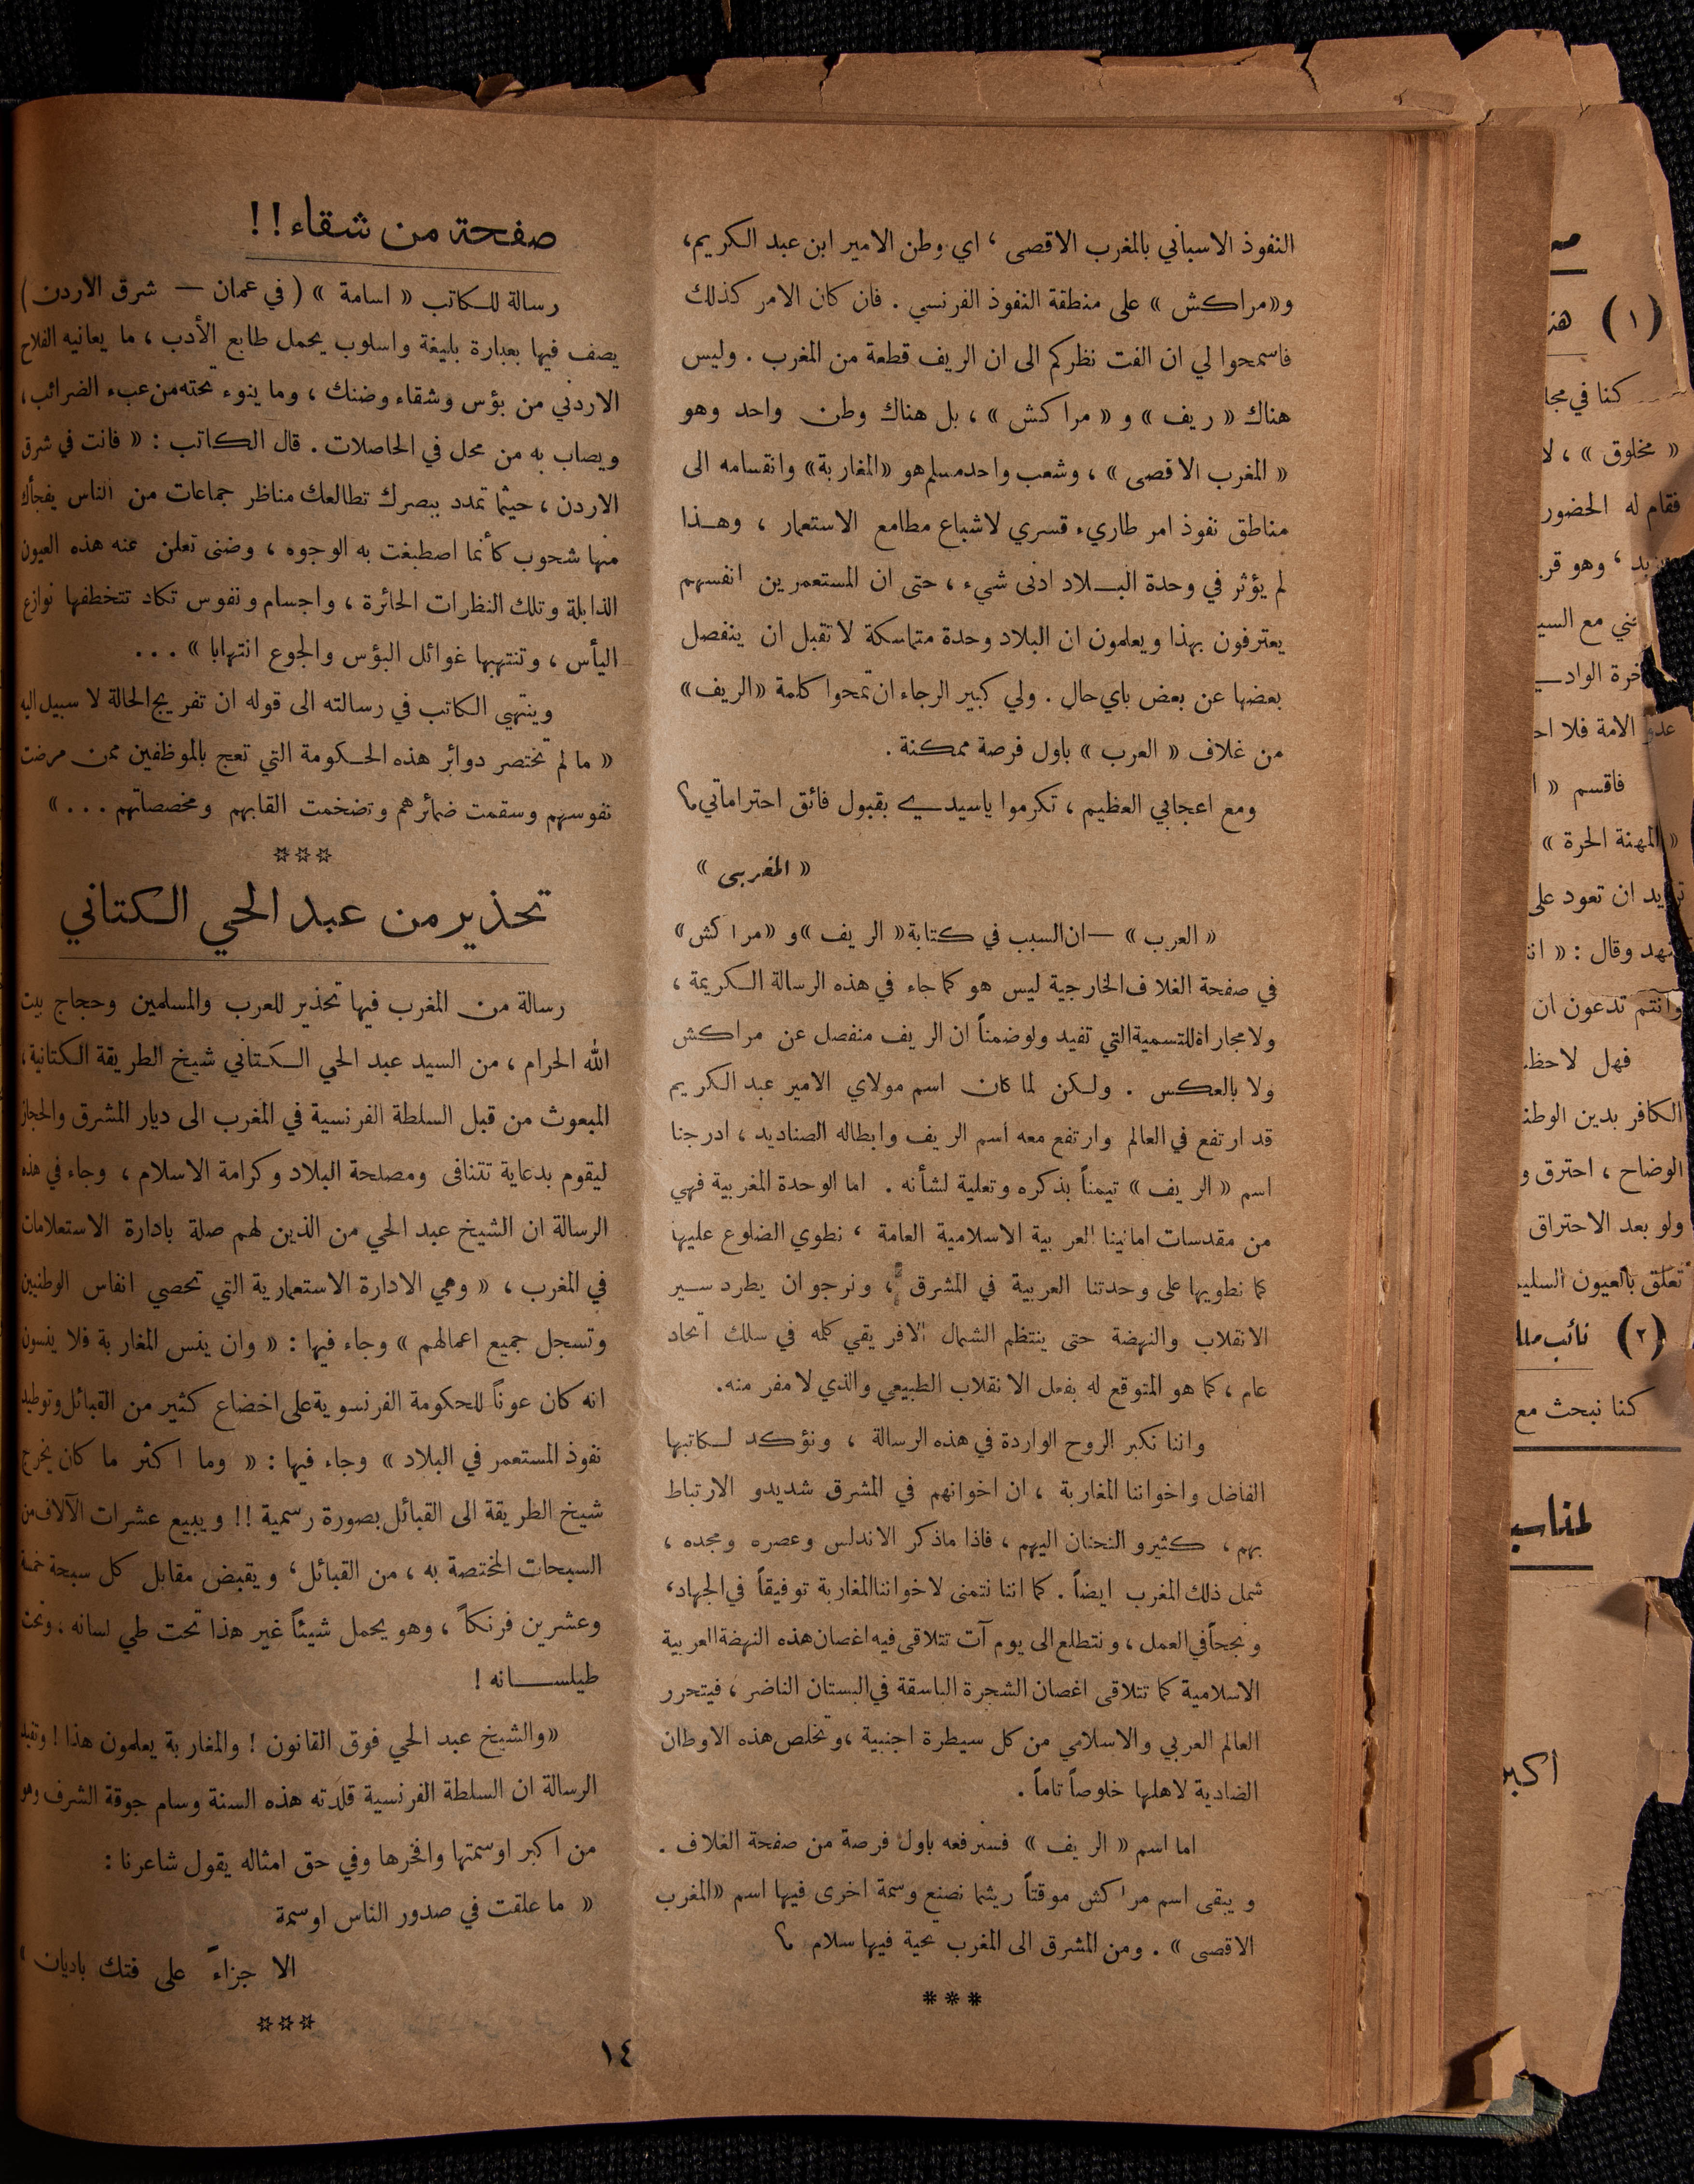 النفوذ الاسباني بالمغرب الاقصى ، اي وطن الامير ابن عبد الكريم،
و«مراكش» على منطقة النفوذ الفرنسي . فان كان الامر كذلك
فاسمحوا لي ان الفت نظركم الى ان الريف قطعة من المغرب . وليس
هناك « ريف » و « مراكش » ، بل هناك وطن واحد وهو
« المغرب الاقصى » ، وشعب واحد مسلم هو «المغاربة» وانقسامه الى
مناطق نفوذ امر طاريء قسري لاشباع مطامع الاستعمار ، وهذا
لم يؤثر في وحدة البلاد ادنى شيء ، حتى ان المستعمرين انفسهم
يعترفون بهذا ويعلمون ان البلاد وحدة متماسكة لا تقبل ان ينفصل
بعضها عن بعض باي حال . ولي كبير الرجاء ان تمحوا كلمة «الريف»
من غلاف « العرب » باول فرصة ممكنة .
ومع اعجابي العظيم ، تكرموا ياسيدي بقبول فائق احتراماتي ؟
« المغربي »
« العرب » — ان السبب في كتابة « الريف » و «مراكش»
في صفحة الغلاف الخارجية ليس هو كما جاء في هذه الرسالة الكريمة ،
ولا مجاراة للتسمية التي تفيد ولو ضمناً ان الريف منفصل عن مراكش
ولا بالعكس . ولكن لما كان اسم مولاي الامير عبد الكريم
قد ارتفع في العالم وارتفع معه اسم الريف وابطاله الصناديد ، ادرجنا
اسم « الريف » تيمناً بذكره وتعلية لشأنه . اما الوحدة المغربية فهي
من مقدسات امانينا العربية الاسلامية العامة ، نطوي الضلوع عليها
كما نطويها على وحدتنا العربية في المشرق ، ونرجو ان يطرد سير
الانقلاب والنهضة حتى ينتظم الشمال الافريقي كله في سلك اتحاد
عام ، كما هو المتوقع له بفعل الانقلاب الطبيعي والذي لا مفر منه.
واننا نكبر الروح الواردة في هذه الرسالة ، ونؤكد لكاتبها
الفاضل واخواننا المغاربة ، ان اخوانهم في المشرق شديدو الارتباط
بهم ، كثيرو التحنان اليهم ، فاذا ماذكر الاندلس وعصره ومجده ،
شمل ذلك المغرب ايضاً . كما اننا نتمنى لاخواننا المغاربة توفيقاً في الجهاد،
ونجحاً في العمل ، ونتطلع الى يوم آت تتلاقى فيه اغصان هذه النهضة العربية
الاسلامية كما تتلاقى اغصان الشجرة الباسقة في البستان الناضر ، فيتحرر
العالم العربي والاسلامي من كل سيطرة اجنبية ، وتخلص هذه الاوطان
الضادية لاهلها خلوصاً تاماً .
اما اسم « الريف » فسنرفعه باول فرصة من صفحة الغلاف .
ويبقى اسم مراكش موقتاً ريثما نصنع وسمة اخرى فيها اسم «المغرب
الاقصى » . ومن المشرق الى المغرب تحية فيها سلام ؟
***
صفحة من شقاء !!
رسالة للكاتب « اسامة » ( في عمان — شرق الاردن )
يصف فيها بعبارة بليغة واسلوب يحمل طابع الأدب ، ما يعانيه الفلاح
الاردني من بؤس وشقاء وضنك ، وما ينوء تحته من عبء الضرائب ،
ويصاب به من محل في الحاصلات . قال الكاتب : « فانت في شرق
الاردن ، حيثما تمدد ببصرك تطالعك مناظر جماعات من الناس يفجأك
منها شحوب كأنما اصطبغت به الوجوه ، وضنى تعلن عنه هذه العيون
الذابلة وتلك النظرات الحائرة ، واجسام ونفوس تكاد تتخطفها نوازع
اليأس ، وتنتهبها غوائل البؤس والجوع انتهابا » ...
وينتهي الكاتب في رسالته الى قوله ان تفريج الحالة لا سبيل اليه
« ما لم تختصر دوائر هذه الحكومة التي تعج بالموظفين ممن مرضت
نفوسهم وسقمت ضمائرهم وتضخمت القابهم ومخصصاتهم ... »
***
تحذير من عبد الحي الكتاني
رسالة من المغرب فيها تحذير للعرب والمسلمين وحجاج بيت
الله الحرام ، من السيد عبد الحي الكتاني شيخ الطريقة الكتانية ،
المبعوث من قبل السلطة الفرنسية في المغرب الى ديار المشرق والحجاز
ليقوم بدعاية تتنافى ومصلحة البلاد وكرامة الاسلام ، وجاء في هذه
الرسالة ان الشيخ عبد الحي من الذين لهم صلة بادارة الاستعلامات
في المغرب ، « وهي الادارة الاستعمارية التي تحصي انفاس الوطنيين
وتسجل جميع اعمالهم » وجاء فيها : « وان ينس المغاربة فلا ينسون
انه كان عوناً للحكومة الفرنسوية على اخضاع كثير من القبائل وتوطيد
نفوذ المستعمر في البلاد » وجاء فيها : « وما اكثر ما كان يخرج
شيخ الطريقة الى القبائل بصورة رسمية !! ويبيع عشرات الآلاف من
السبحات المختصة به ، من القبائل ، ويقبض مقابل كل سبحة خمسة
وعشرين فرنكاً ، وهو يحمل شيئاً غير هذا تحت طي لسانه ، وتحت
طيلسانه !
«والشيخ عبد الحي فوق القانون ! والمغاربة يعلمون هذا !
الرسالة ان السلطة الفرنسية قلدته هذه السنة وسام جوقة الشرف وهو
من اكبر اوسمتها وافخرها وفي حق امثاله يقول شاعرنا :
« ما علقت في صدور الناس اوسمة
الا جزاءً على فتك باديان »
***
١٤
(١) هذ
كنا في مجا
« مخلوق » ، لا
فقام له الحضور
، وهو قر
ني مع السي
عدو الامة فلا اح
فاقسم « ا
« المهنة الحرة »
تريد ان تعود على
وقال : « ان
وانتم تدعون ان
فهل لاحظ
الكافر بدين الوطن
الوضاح ، احترق و
ولو بعد الاحتراق
تعلق بالعيون السليم
(٢) نائب
كنا نبحث مع
لمناسب
اكبر